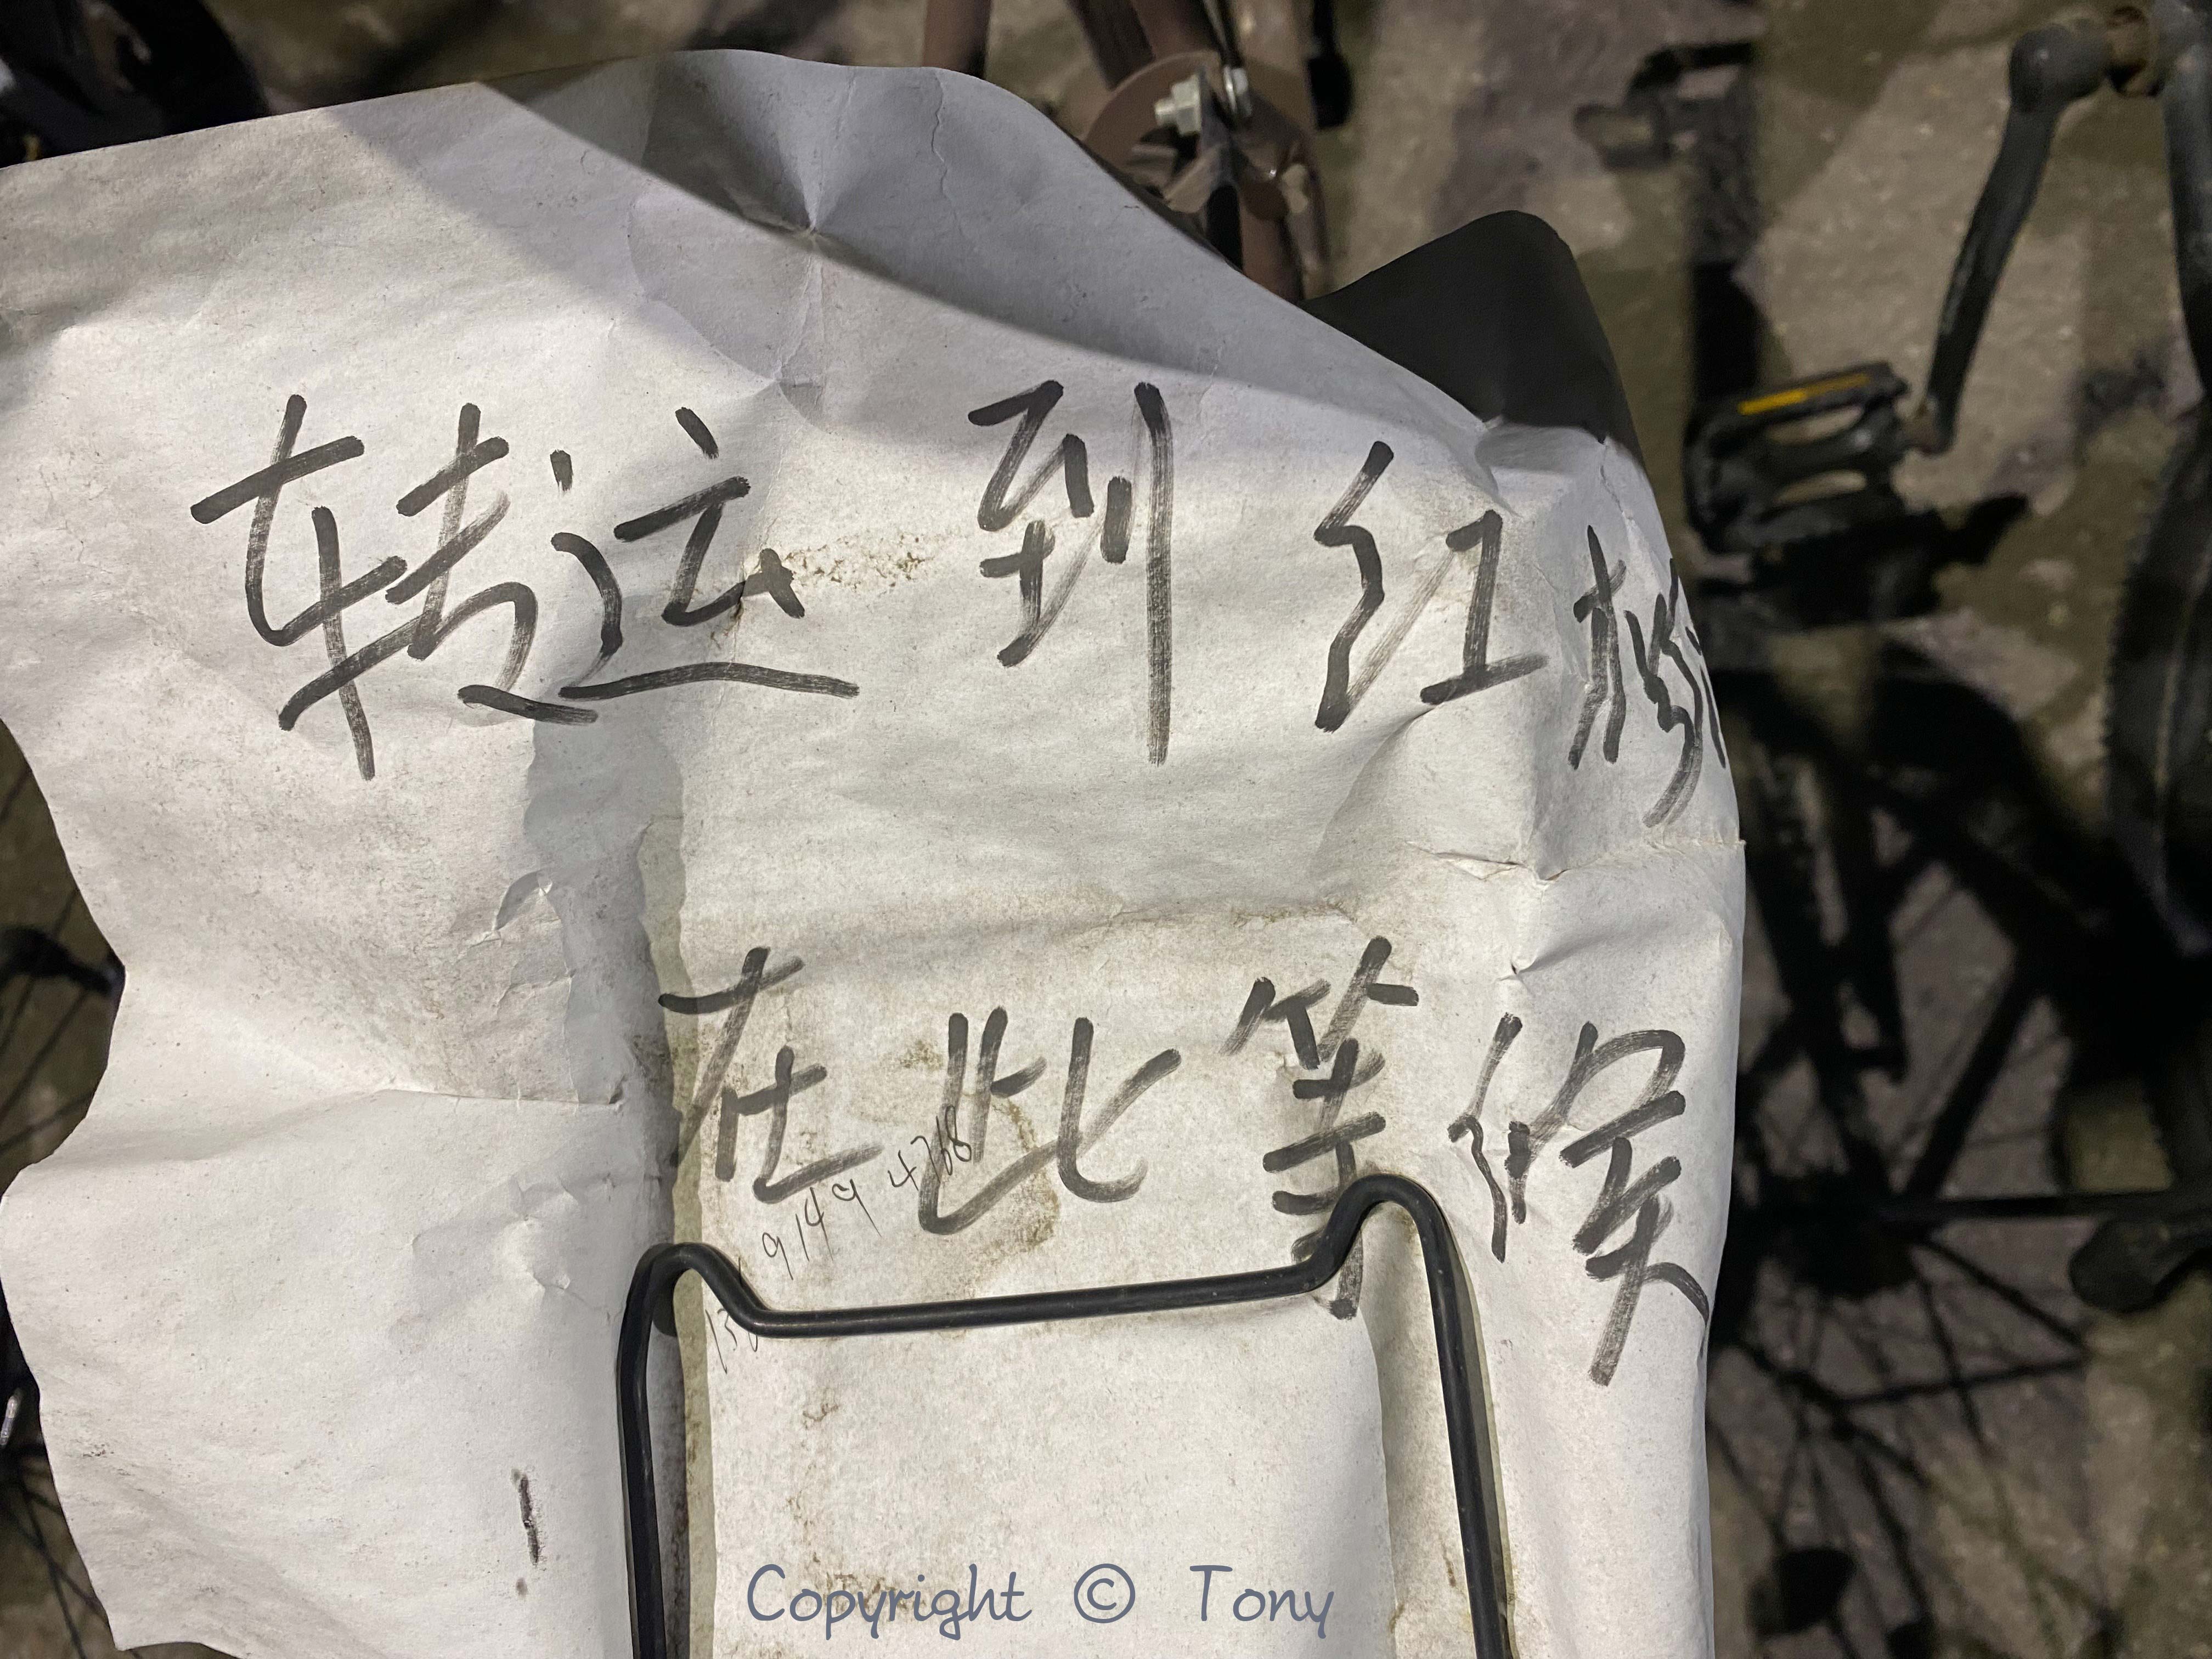 转运到 红杉
在此等候
9149 4768
Copyright © Tony